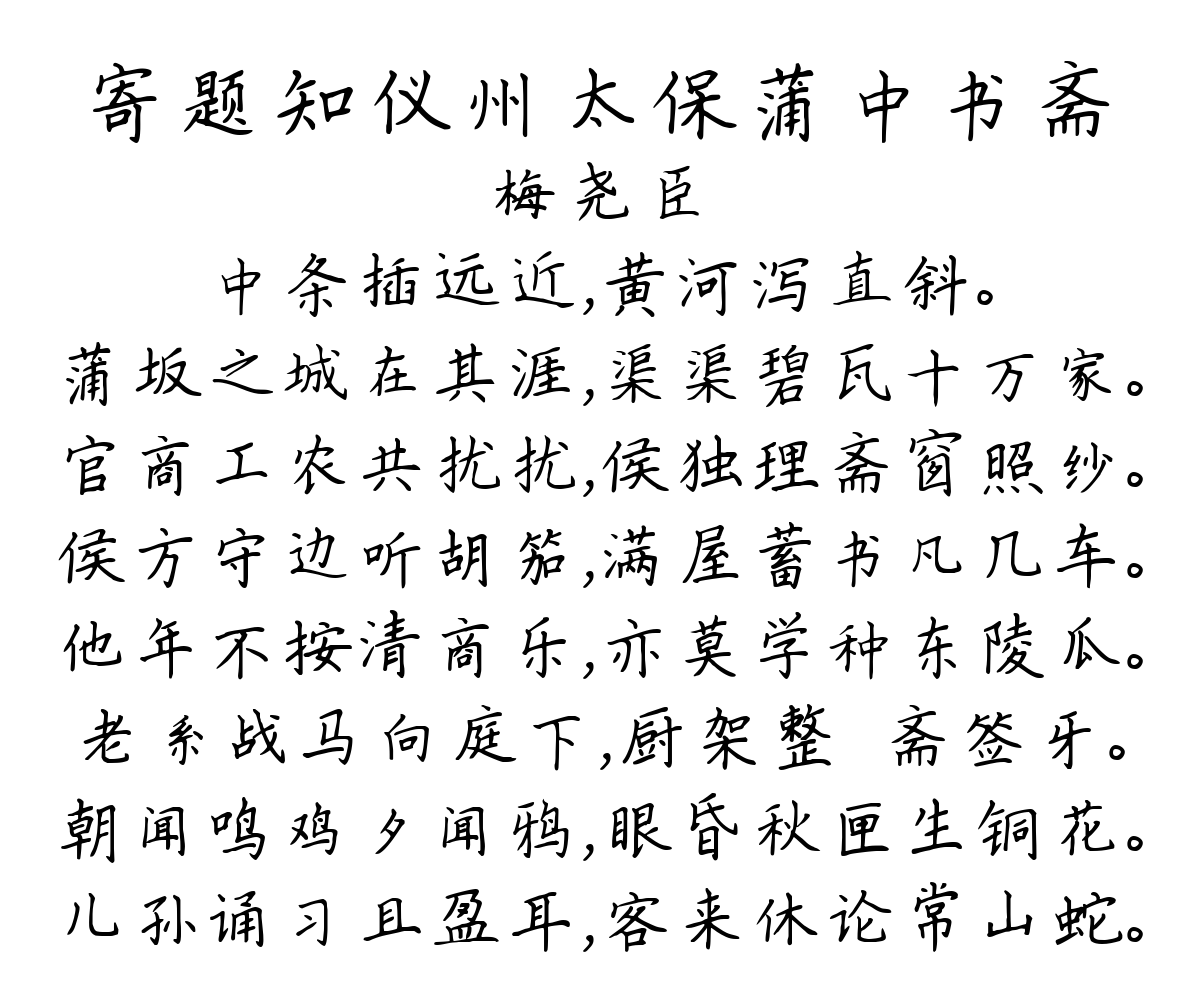 寄题知仪州太保蒲中书斋
梅尧臣
中条插远近,黄河泻直斜。
蒲坂之城在其涯,渠渠碧瓦十万家。
官商工农共扰扰,侯独理斋窗照纱。
侯方守边听胡笳,满屋蓄书凡几车。
他年不按清商乐,亦莫学种东陵瓜。
老系战马向庭下,厨架整 斋签牙。
朝闻鸣鸡夕闻鸦,眼昏秋匣生铜花。
儿孙诵习且盈耳,客来休论常山蛇。